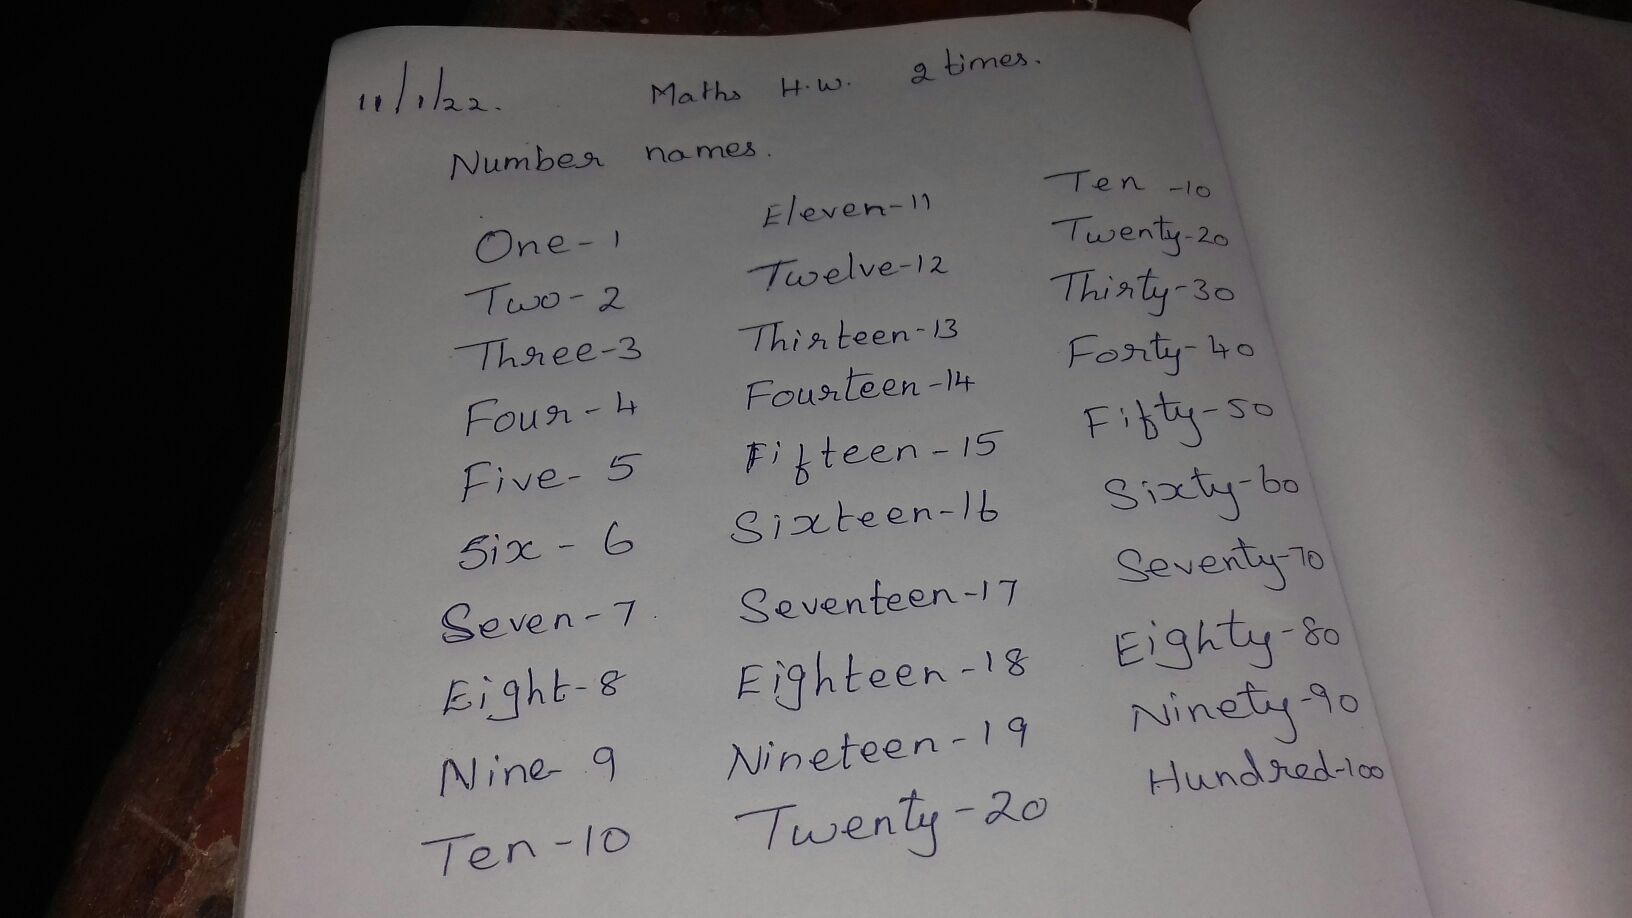 11/1/22. Maths H.W. 2 times.
Number names.
One - 1
Two - 2
Three - 3
Four - 4
Five - 5
Six - 6
Seven - 7.
Eight - 8
Nine - 9
Ten - 10
Eleven - 11
Twelve - 12
Thirteen - 13
Fourteen - 14
Fifteen - 15
Sixteen - 16
Seventeen - 17
Eighteen - 18
Nineteen - 19
Twenty - 20
Ten - 10
Twenty - 20
Thirty - 30
Forty - 40
Fifty - 50
Sixty - 60
Seventy - 70
Eighty - 80
Ninety - 90
Hundred - 100